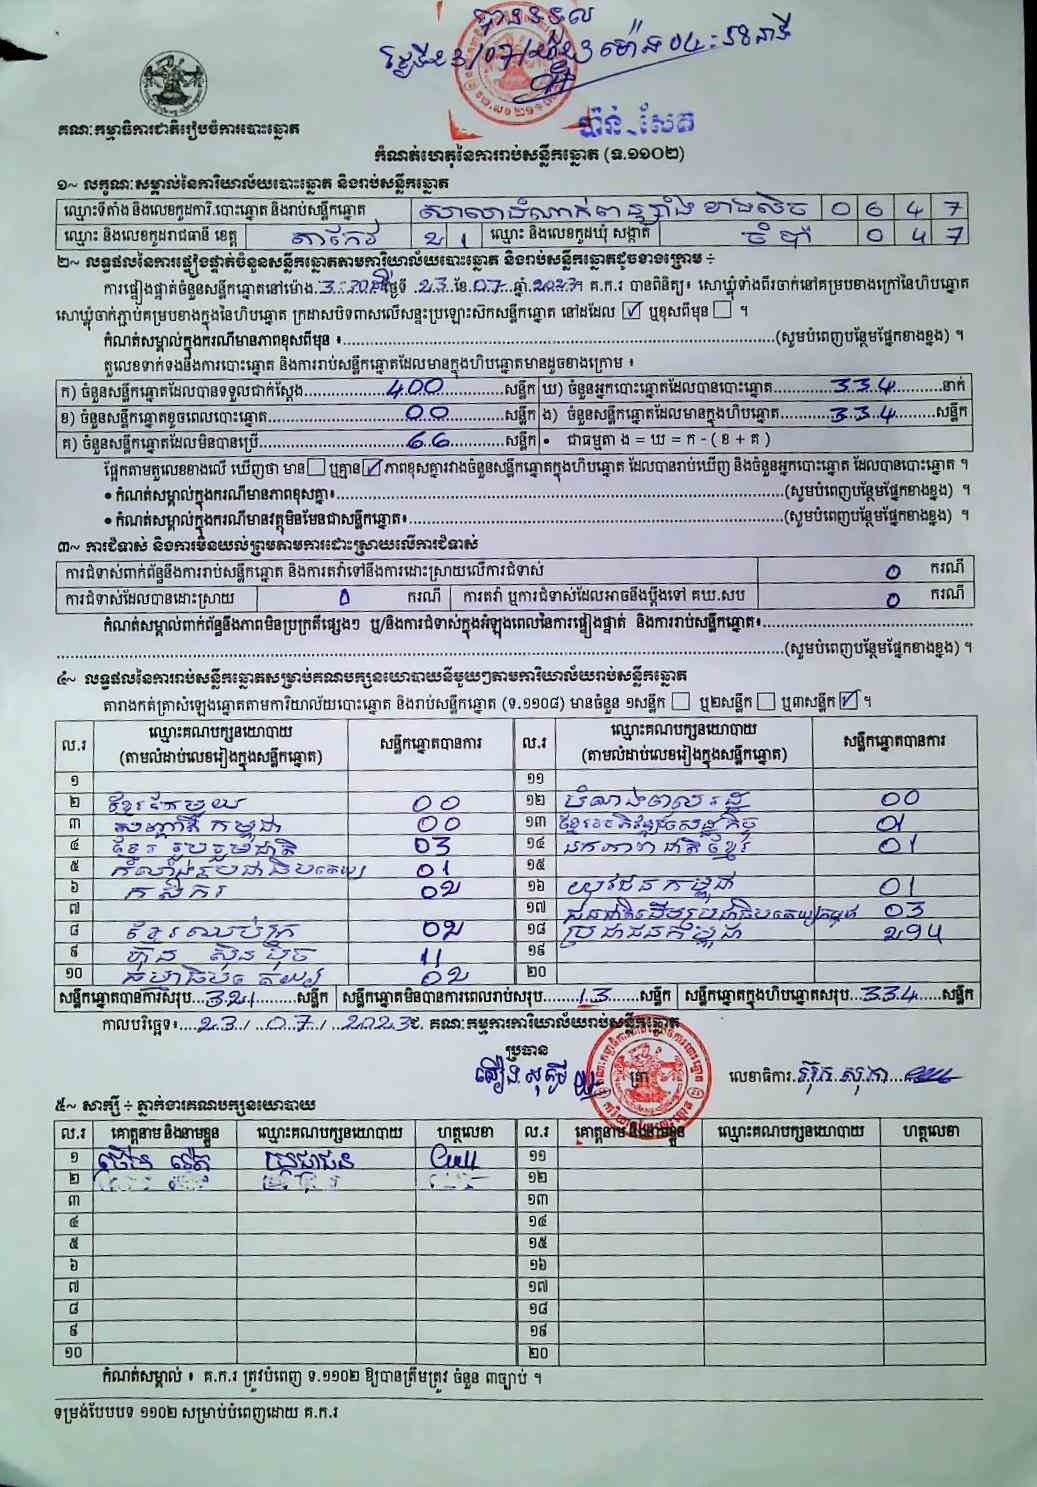 បានទទួល
ថ្ងៃទី23/07/2023 ម៉ោង 04:
គណៈកម្មាធិការជាតិរៀបចំការបោះឆ្នោត
កំណត់ហេតុនៃការរាប់សន្លឹកឆ្នោត (ទ.១១០២)
១~ លក្ខណៈសម្គាល់នៃការិយាល័យបោះឆ្នោត និងរាប់សន្លឹកឆ្នោត
ឈ្មោះទីតាំង និងលេខកូដការិ.បោះឆ្នោត និងរាប់សន្លឹកឆ្នោត 0 6 4 7
ឈ្មោះ និងលេខកូដរាជធានី ខេត្ត តាកែវ 2 1 ឈ្មោះ និងលេខកូដឃុំ សង្កាត់ ចំប៉ា 0 4 7
២~ លទ្ធផលនៃការផ្ទៀងផ្ទាត់ចំនួនសន្លឹកឆ្នោតតាមការិយាល័យបោះឆ្នោត និងរាប់សន្លឹកឆ្នោតដូចខាងក្រោម ÷
ការផ្ទៀងផ្ទាត់ចំនួនសន្លឹកឆ្នោតនៅម៉ោង ថ្ងៃទី 23 ខែ 07 ឆ្នាំ 2023។ គ.ក.រ បានពិនិត្យ៖ សោឃ្លុំទាំងពីរចាក់នៅគម្របខាងក្រៅនៃហិបឆ្នោត
សោឃ្លុំចាក់ភ្ជាប់គម្របខាងក្នុងនៃហិបឆ្នោត ក្រដាសបិទពាសលើសន្ទះប្រឡោះស៊កសន្លឹកឆ្នោត នៅដដែល ☑ ឬខុសពីមុន ☐ ។
កំណត់សម្គាល់ក្នុងករណីមានភាពខុសពីមុន ៖ (សូមបំពេញបន្ថែមផ្នែកខាងខ្នង) ។
តួលេខទាក់ទងនឹងការបោះឆ្នោត និងការរាប់សន្លឹកឆ្នោតដែលមានក្នុងហិបឆ្នោតមានដូចខាងក្រោម ៖
ក) ចំនួនសន្លឹកឆ្នោតដែលបានទទួលជាក់ស្តែង 400 សន្លឹក ឃ) ចំនួនអ្នកបោះឆ្នោតដែលបានបោះឆ្នោត 334 នាក់
ខ) ចំនួនសន្លឹកឆ្នោតខូចពេលបោះឆ្នោត 00 សន្លឹក ង) ចំនួនសន្លឹកឆ្នោតដែលមានក្នុងហិបឆ្នោត 334 សន្លឹក
គ) ចំនួនសន្លឹកឆ្នោតដែលមិនបានប្រើ 66 សន្លឹក • ជាធម្មតា ង = ឃ = ក - ( ខ + គ )
ផ្អែកតាមតួលេខខាងលើ ឃើញថា មាន ☐ ឬគ្មាន ☑ ភាពខុសគ្នារវាងចំនួនសន្លឹកឆ្នោតក្នុងហិបឆ្នោត ដែលបានរាប់ឃើញ និងចំនួនអ្នកបោះឆ្នោត ដែលបានបោះឆ្នោត ។
• កំណត់សម្គាល់ក្នុងករណីមានភាពខុសគ្នា៖ (សូមបំពេញបន្ថែមផ្នែកខាងខ្នង) ។
• កំណត់សម្គាល់ក្នុងករណីមានវត្ថុមិនមែនជាសន្លឹកឆ្នោត៖ (សូមបំពេញបន្ថែមផ្នែកខាងខ្នង) ។
៣~ ការជំទាស់ និងការមិនយល់ព្រមតាមការដោះស្រាយលើការជំទាស់
ការជំទាស់ពាក់ព័ន្ធនឹងការរាប់សន្លឹកឆ្នោត និងការតវ៉ាទៅនឹងការដោះស្រាយលើការជំទាស់ 0 ករណី
ការជំទាស់ដែលបានដោះស្រាយ 0 ករណី ការតវ៉ា ឬការជំទាស់ដែលអាចនឹងប្តឹងទៅ គឃ.សប 0 ករណី
កំណត់សម្គាល់ពាក់ព័ន្ធនឹងភាពមិនប្រក្រតីផ្សេងៗ ឬ/និងការជំទាស់ក្នុងអំឡុងពេលនៃការផ្ទៀងផ្ទាត់ និងការរាប់សន្លឹកឆ្នោត៖
(សូមបំពេញបន្ថែមផ្នែកខាងខ្នង) ។
៤~ លទ្ធផលនៃការរាប់សន្លឹកឆ្នោតសម្រាប់គណបក្សនយោបាយនីមួយៗតាមការិយាល័យរាប់សន្លឹកឆ្នោត
តារាងកត់ត្រាសំឡេងឆ្នោតតាមការិយាល័យបោះឆ្នោត និងរាប់សន្លឹកឆ្នោត (ទ.១១០៨) មានចំនួន ១សន្លឹក ☐ ឬ២សន្លឹក ☐ ឬ៣សន្លឹក ☑ ។
ល.រ ឈ្មោះគណបក្សនយោបាយ (តាមលំដាប់លេខរៀងក្នុងសន្លឹកឆ្នោត) សន្លឹកឆ្នោតបានការ ល.រ ឈ្មោះគណបក្សនយោបាយ (តាមលំដាប់លេខរៀងក្នុងសន្លឹកឆ្នោត) សន្លឹកឆ្នោតបានការ
១ ១១
២ ខ្មែរតែមួយ 00 ១២ 00
៣ កម្ពុជា 00 ១៣ ខ្មែរអភិវឌ្ឍន៍សេដ្ឋកិច្ច 01
៤ ខ្មែររួបរួមជាតិ 03 ១៤ ឯកភាពជាតិខ្មែរ 01
៥ 01 ១៥
៦ កសិករ 02 ១៦ យុវជនកម្ពុជា 01
៧ ១៧ 03
៨ ខ្មែរឈប់ក្រ 02 ១៨ ប្រជាជនកម្ពុជា 294
៩ ហ៊្វុនស៊ិនប៉ិច 11 ១៩
១០ 02 ២០
សន្លឹកឆ្នោតបានការសរុប 321 សន្លឹក សន្លឹកឆ្នោតមិនបានការពេលរាប់សរុប 13 សន្លឹក សន្លឹកឆ្នោតក្នុងហិបឆ្នោតសរុប 334 សន្លឹក
កាលបរិច្ឆេទ៖ 23 / 07 / 2023 គណៈកម្មការការិយាល័យរាប់សន្លឹកឆ្នោត
ប្រធាន
ត្រា លេខាធិការ
៥~ សាក្សី ÷ ភ្នាក់ងារគណបក្សនយោបាយ
ល.រ គោត្តនាម និងនាមខ្លួន ឈ្មោះគណបក្សនយោបាយ ហត្ថលេខា ល.រ គោត្តនាម និងនាមខ្លួន ឈ្មោះគណបក្សនយោបាយ ហត្ថលេខា
១ ប្រជាជន ១១
២ ១២
៣ ១៣
៤ ១៤
៥ ១៥
៦ ១៦
៧ ១៧
៨ ១៨
៩ ១៩
១០ ២០
កំណត់សម្គាល់ ៖ គ.ក.រ ត្រូវបំពេញ ទ.១១០២ ឱ្យបានត្រឹមត្រូវ ចំនួន ៣ច្បាប់ ។
ទម្រង់បែបបទ ១១០២ សម្រាប់បំពេញដោយ គ.ក.រ